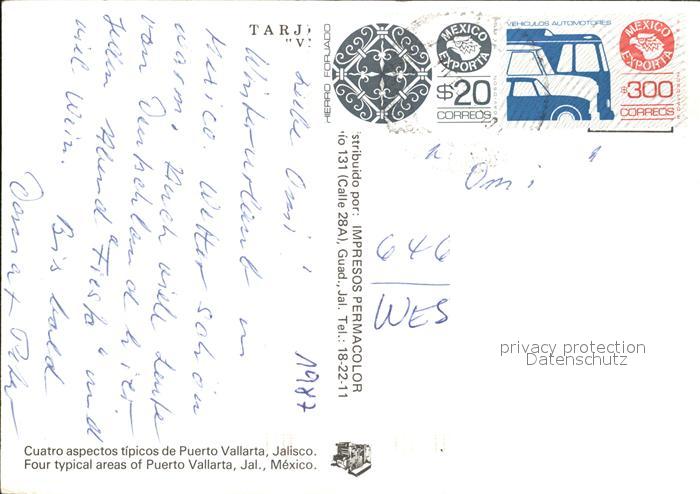 TARJ
"V
Liebe Omi!
Winterurlaub in
Mexico. Wetter schön
warm. Auch viele Leute
von Deutschland hier
Jeden Abend "Fiesta" und
viel Wein.
Bis bald
1987
HIERRO FORJADO
MEXICO EXPORTA
$20
CORREOS
VEHICULOS AUTOMOTORES
MEXICO EXPORTA
$300
CORREOS
stribuido por: IMPRESOS PERMACOLOR
ío 131 (Calle 28A), Guad., Jal. Tel.: 18-22-11
Omi
646
WES
privacy protection
Datenschutz
Cuatro aspectos típicos de Puerto Vallarta, Jalisco.
Four typical areas of Puerto Vallarta, Jal., México.